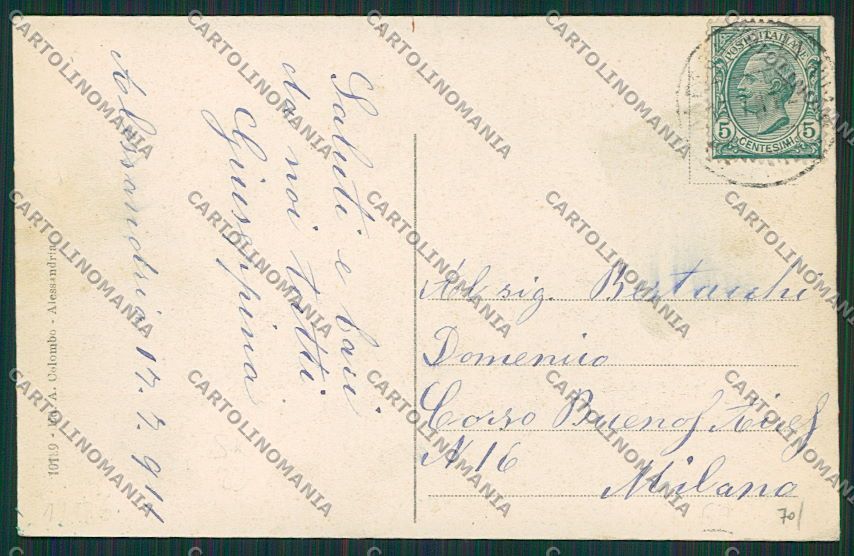 Saluti e baci
da noi tutti
Giuseppina
Alessandria 17.7.911
Ed. A. Colombo - Alessandria
POSTE ITALIANE
5 5
CENTESIMI
Al sig. Bertacchi
Domenico
Corso Buenos Aires
N 16
Milano
70/
CARTOLINOMANIA